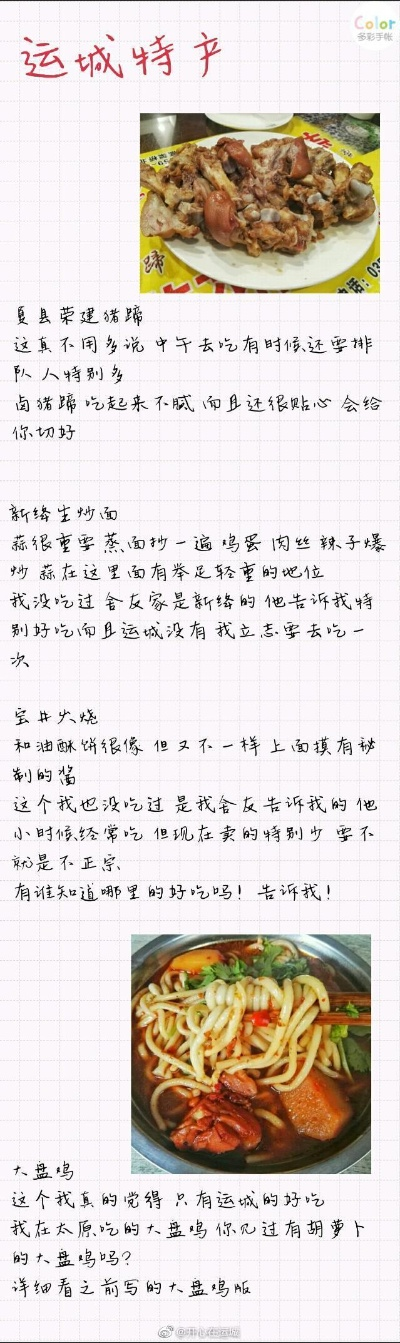 Color
多彩手帐
运城特产
夏县荣建猪蹄
这真不用多说 中午去吃有时候还要排
队 人特别多
卤猪蹄 吃起来不腻 而且还很贴心 会给
你切好
新绛生炒面
蒜很重要 蒸面抄一遍 鸡蛋 肉丝 辣子爆
炒 蒜在这里面有举足轻重的地位
我没吃过 舍友家是新绛的 他告诉我特
别好吃而且运城没有 我立志要去吃一
次
宝井火烧
和油酥饼很像 但又不一样 上面摸有秘
制的酱
这个我也没吃过 是我舍友告诉我的 他
小时候经常吃 但现在卖的特别少 要不
就是不正宗
有谁知道哪里的好吃吗! 告诉我!
大盘鸡
这个我真的觉得 只有运城的好吃
我在太原吃的大盘鸡 你见过有胡萝卜
的大盘鸡吗?
详细看之前写的大盘鸡版
@开心在运城